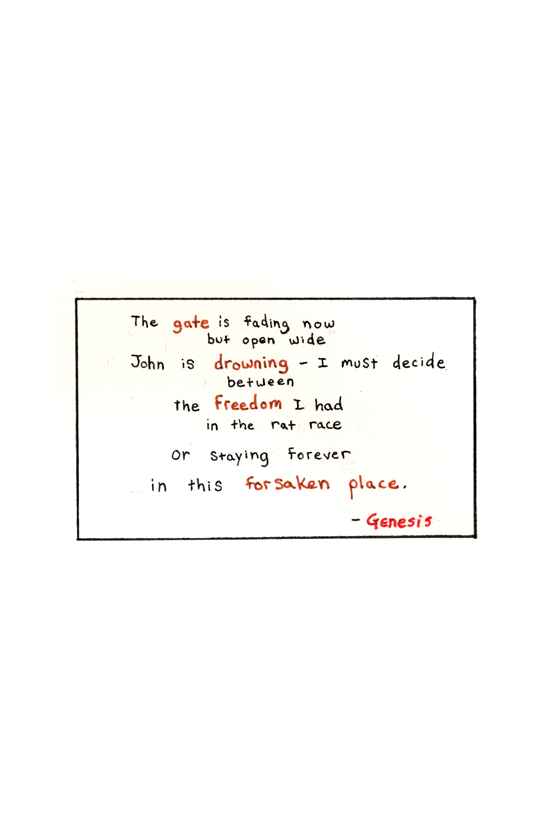 The gate is fading now
but open wide
John is drowning - I must decide
between
the freedom I had
in the rat race
or staying forever
in this forsaken place.
- Genesis